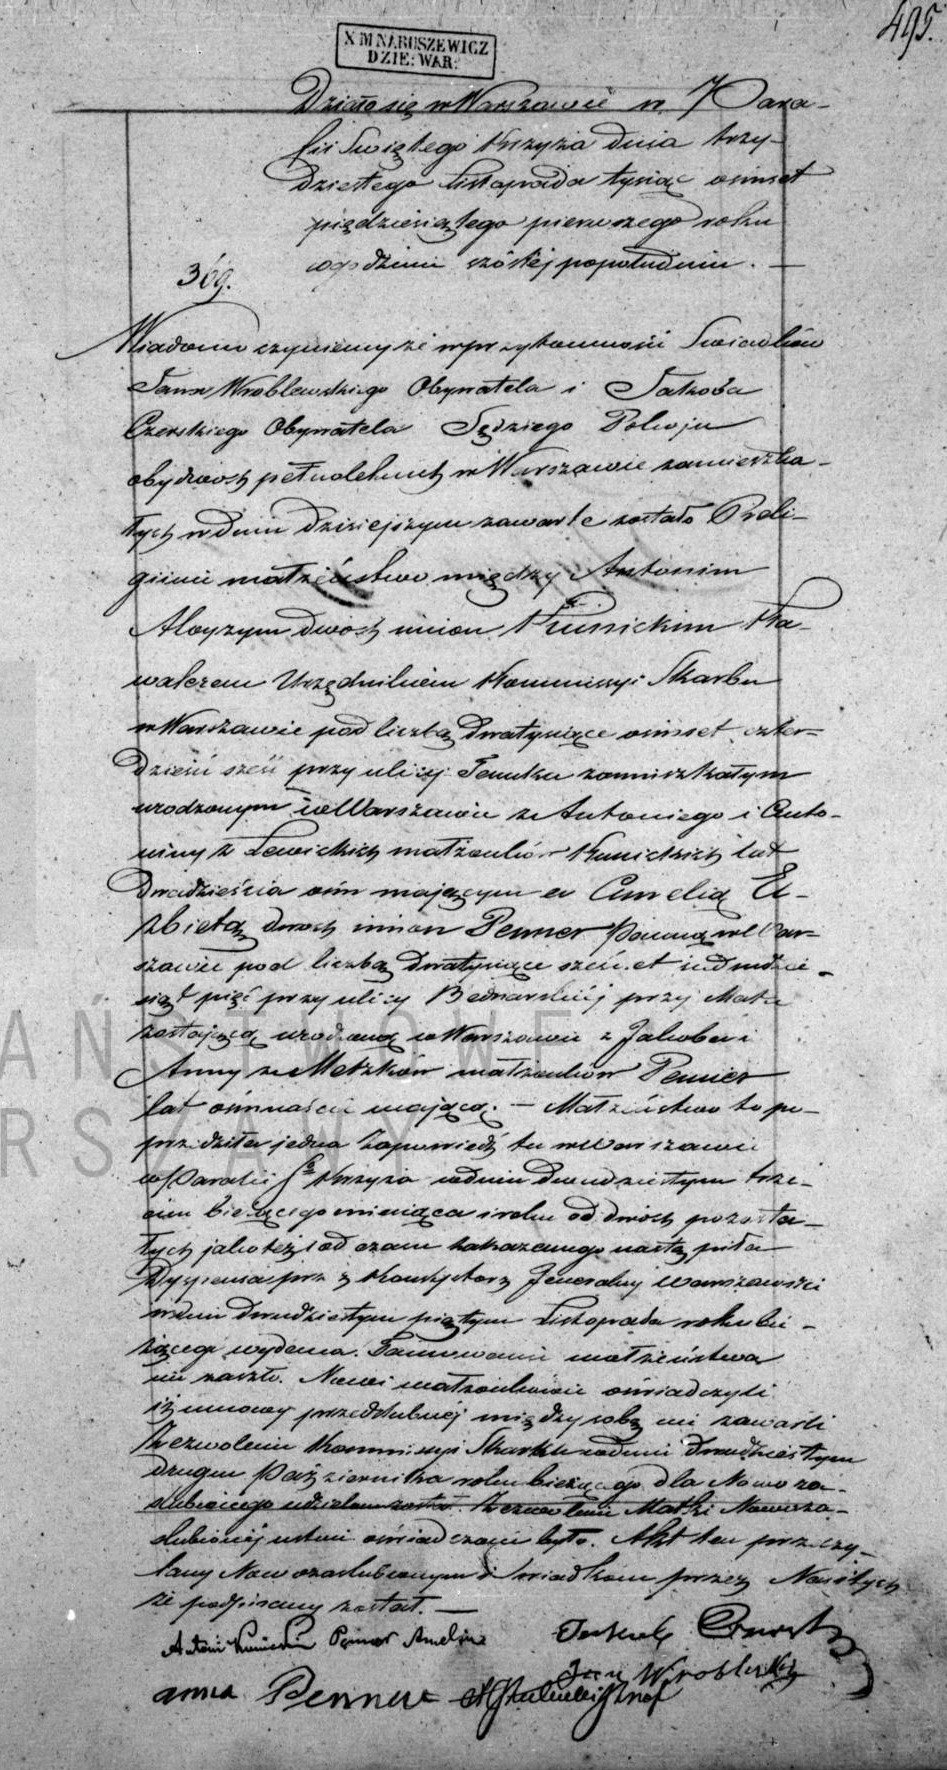 495.
X M NARUSZEWICZ
DZIE: WAR:
Działo się w Warszawie w Para-
fii Swiętego Krzyża dnia trzy-
dziestego Listopada tysiąc ośmset
pięćdziesiątego pierwszego roku
o godzinie szóstej popołudniu. —
369.
Wiadomo czyniemy że w przytomności Swiadków
Jana Wroblewskiego Obywatela i Jakóba
Czerskiego Obywatela Sędziego Pokoju
obydwóch pełnoletnich w Warszawie zamieszka-
łych w dniu dzisiejszym zawarte zostało Reli-
gijne małżeństwo między Antonim
Aloyzym dwóch imion Kunickim Ka-
walerem Urzędnikiem Kommissyi Skarbu
w Warszawie pod liczbą dwatysiące ośmset czter-
dzieści sześć przy ulicy zamieszkałym
urodzonym w Warszawie z Antoniego i Anto-
niny z Lewickich małżonków Kunickich lat
dwadzieścia ośm mającym a Amelią El-
żbietą dwóch imion Penner Panną w War-
szawie pod liczbą dwatysiące sześćset siedmdzie-
siąt pięć przy ulicy Bednarskiéj przy Matce
zostającą urodzoną w Warszawie z Jakóba i
Anny z Metzków małżonków Penner
lat ośmnaście mającą. — Małżeństwo to po-
przedziła jedna Zapowiedź tu w Warszawie
w Parafii Sgo Krzyża w dniu dwudziestym trze-
cim bieżącego miesiąca i roku od dwóch pozosta-
łych jako też i od czasu zakazanego nastąpiła
Dyspensa przez Konsystorz Jeneralny Warszawski
w dniu dwudziestym piątym Listopada roku bie-
żącego wydana. Tamowanie małżeństwa
nie zaszło. Nowi małżonkowie oświadczyli
iż umowy przedślubnéj między sobą nie zawarli
Zezwolenie Kommissyi Skarbu w dniu dwudziestym
drugim Października roku bieżącego dla Nowo za-
ślubionego udzielone zostało. Zezwolenie Matki Nowoza-
ślubionéj ustnie oświadczone było. Akt ten przeczy-
tany Nowozaślubionym i Swiadkom przez Nas i tych
że podpisany został. —
Antoni Kunicki Penner Amelia
Jan Wroblewski
anna Penner